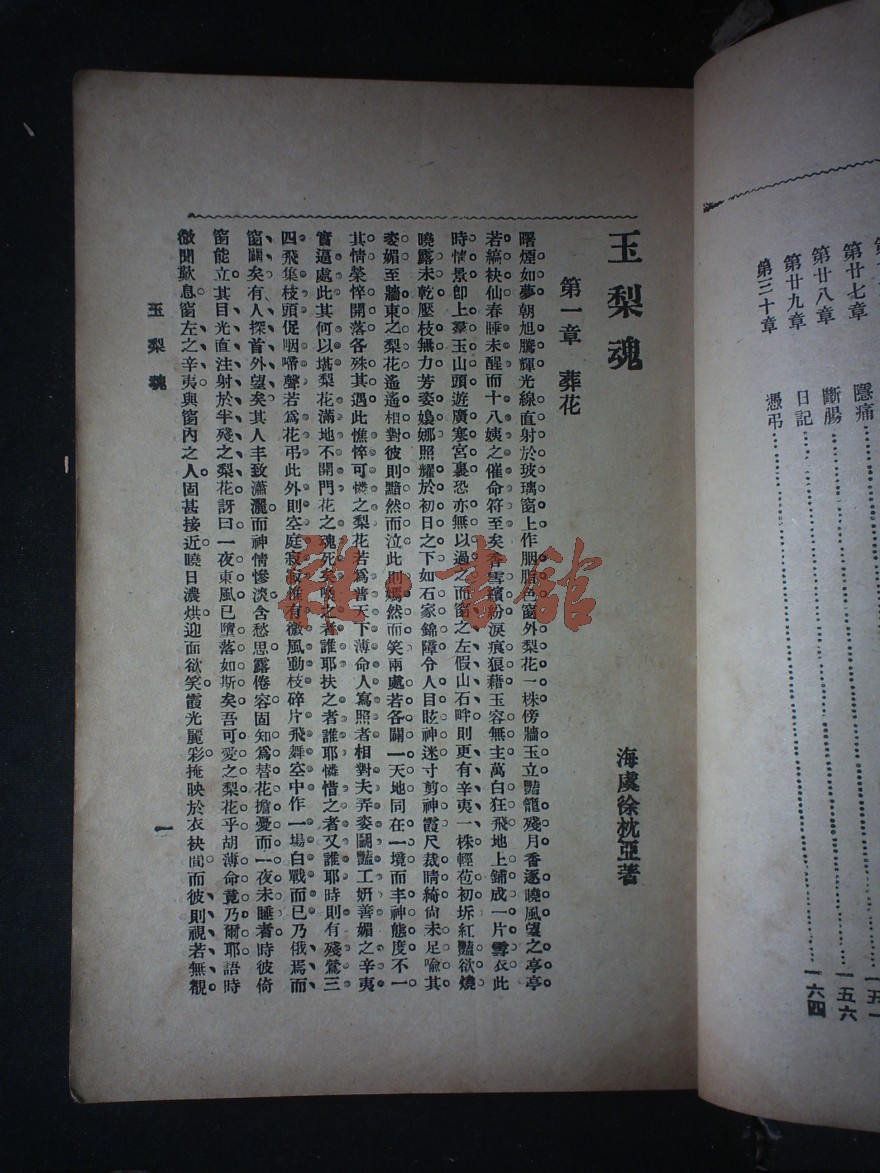 第廿七章 隱痛
第廿八章 斷腸……一五一
第廿九章 日記……一五六
第三十章 憑弔……一六四
玉梨魂
海虞徐枕亞著
第一章 葬花
曙煙如夢朝旭騰輝光線直射於玻璃窗上作胭脂色窗外梨花一株傍牆玉立豔籠殘月香逐曉風望之亭亭
若縞袂仙春睡未醒而十八姨之催命符至矣香雪繽紛淚痕狼藉玉容無主萬白狂飛地上鋪成一片雪衣此
時情景卽上羣玉山頭遊廣寒宮裏恐亦無以過之而窗之左假山石畔則更有辛夷一株輕苞初坼紅豔欲燒
曉露未乾壓枝無力芳姿嬝娜照耀於初日之下如石家錦障令人目眩神迷寸剪神霞尺裁晴綺尙未足喩其
姿媚至牆東之梨花遙遙相對彼則黯然而泣此則嫣然而笑兩處若各闢一天地同在一境而丰神態度不一
其情榮悴開落各殊其遇此憔悴可憐之梨花若爲普天下薄命人寫照者相對夫弄姿鬭豔工妍善媚之辛夷
實逼處此其何以堪梨花滿地不開門花之魂死矣喚之者誰耶扶之者誰耶憐惜之者又誰耶時則有殘鶯三
四飛集枝頭促咽啼聲若爲花弔此外則空庭寂寂惟有微風動枝碎片飛舞空中作一場白戰而已乃俄焉而
窗闢矣有人探首外望矣其人丰致瀟灑而神情慘淡含愁思露倦容固知爲替花擔憂而一夜未睡者時彼倚
窗能立其目光直注射於半殘之梨花訝曰一夜東風已墮落如斯矣吾可愛之梨花乎胡薄命竟乃爾耶語時
微聞歎息窗左之辛夷與窗內之人固甚接近曉日濃烘迎面欲笑霞光麗彩掩映於衣袂間而彼則視若無覩
玉梨魂
一
雜·書館